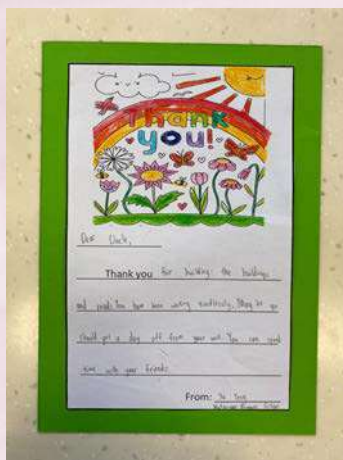 Thank
you!
Dear Uncle,
Thank you for building the buildings
and roads. You have been working tirelessly.
should get a day off from your work. You can spend
time with your friends.
From: